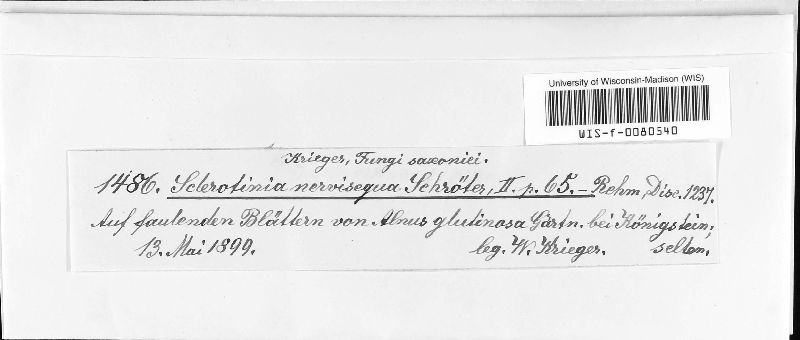 University of Wisconsin-Madison (WIS)
WIS-f-0080540
Krieger, Fungi saxonici.
1486. Sclerotinia nervisequa Schröter, II. p. 65. – Rehm, Disc. 1237.
Auf faulenden Blättern von Alnus glutinosa Gärtn. bei Königstein;
13. Mai 1899. leg. W. Krieger. selten.